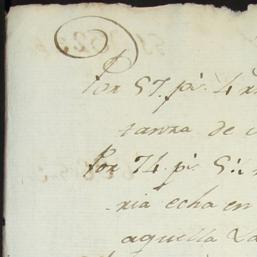 Por 57. p.s 4 r
tanza de c
Por 74. p.s 5: r
ria echa en
aquella La